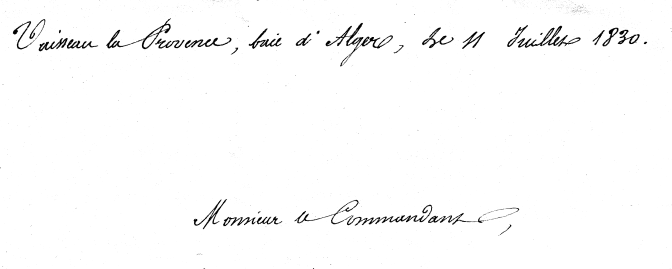 Vaisseau la Provence, baie d'Alger, Le 11 Juillet 1830.
Monsieur le Commandant,